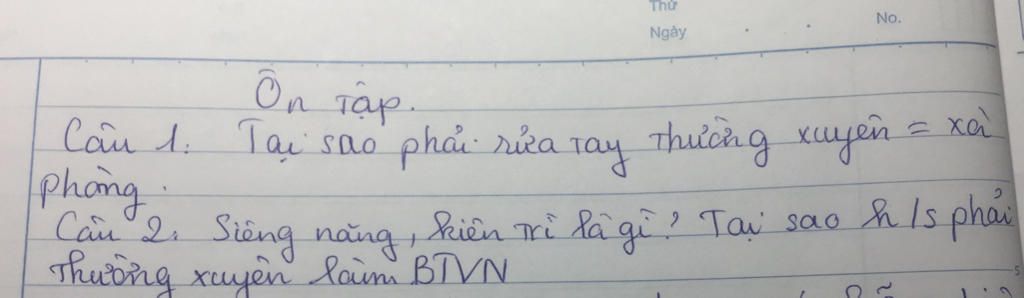 Thứ
Ngày
No.
Ôn tập.
Câu 1. Tại sao phải rửa tay thường xuyên = xà
phòng.
Câu 2. Siêng năng, kiên trì là gì? Tại sao h/s phải
thường xuyên làm BTVN